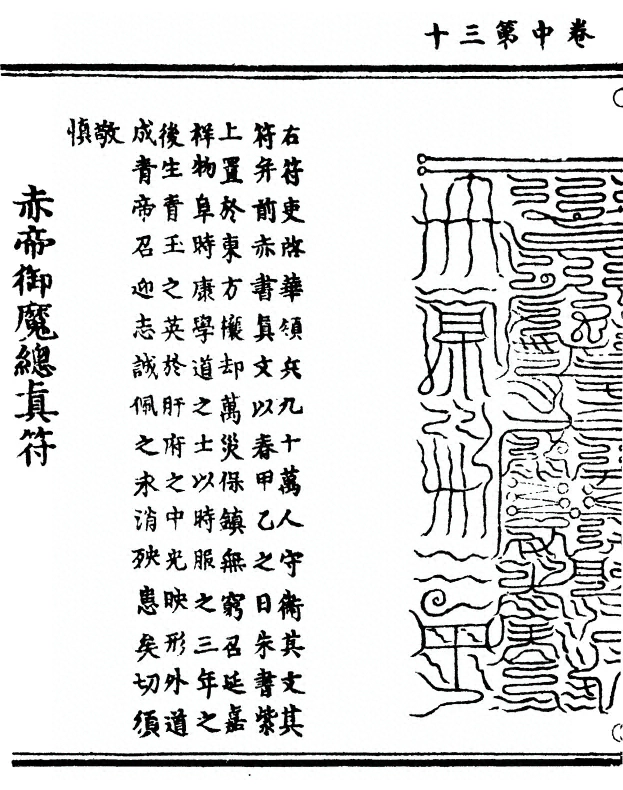 卷中第三十
右符吏啓華領兵九十萬人守衛其文其
符并前赤書眞文以春甲乙之日朱書紫
上置於東方攘却萬災保鎮無窮召延嘉
祥物阜時康學道之士以時服之三年之
後生青玉之英於肝府之中光映形外道
成青帝召迎志誠佩之永消殃患矣切須
敬慎
赤帝御魔總眞符